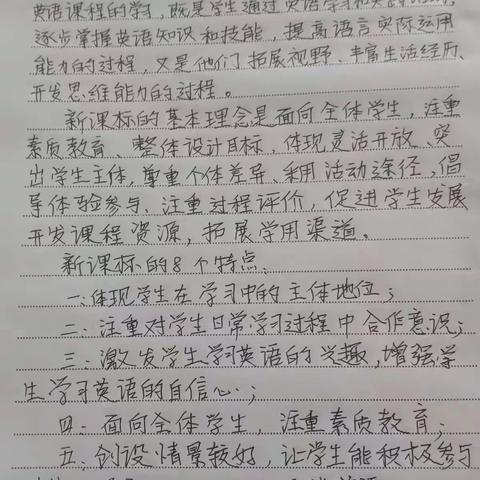 英语课程的学习，既是学生通过英语学习和实
逐步掌握英语知识和技能，提高语言实际运用
能力的过程，又是他们拓展视野、丰富生活经历、
开发思维能力的过程。
新课标的基本理念是面向全体学生，注重
素质教育、整体设计目标，体现灵活开放、突
出学生主体，尊重个体差异、采用活动途径，倡
导体验参与、注重过程评价，促进学生发展
开发课程资源，拓展学用渠道。
新课标的8个特点：
一：体现学生在学习中的主体地位；
二：注重对学生日常学习过程中合作意识；
三：激发学生学习英语的兴趣，增强学
生学习英语的自信心；
四：面向全体学生，注重素质教育；
五：创设情景较好，让学生能积极参与